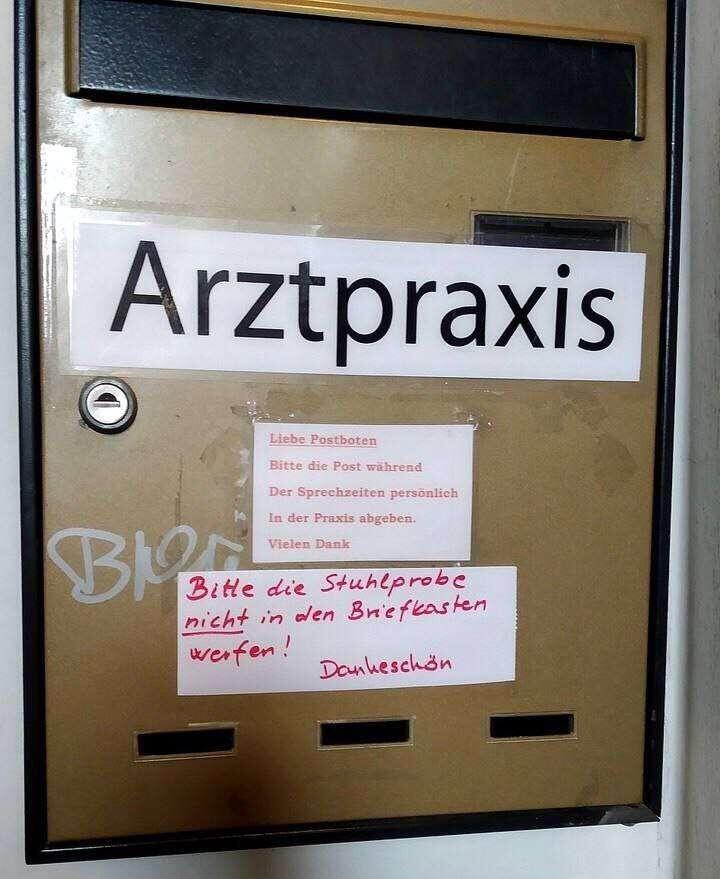 Arztpraxis
Liebe Postboten
Bitte die Post während
Der Sprechzeiten persönlich
In der Praxis abgeben.
Vielen Dank
Bitte die Stuhlprobe
nicht in den Briefkasten
werfen!
Dankeschön